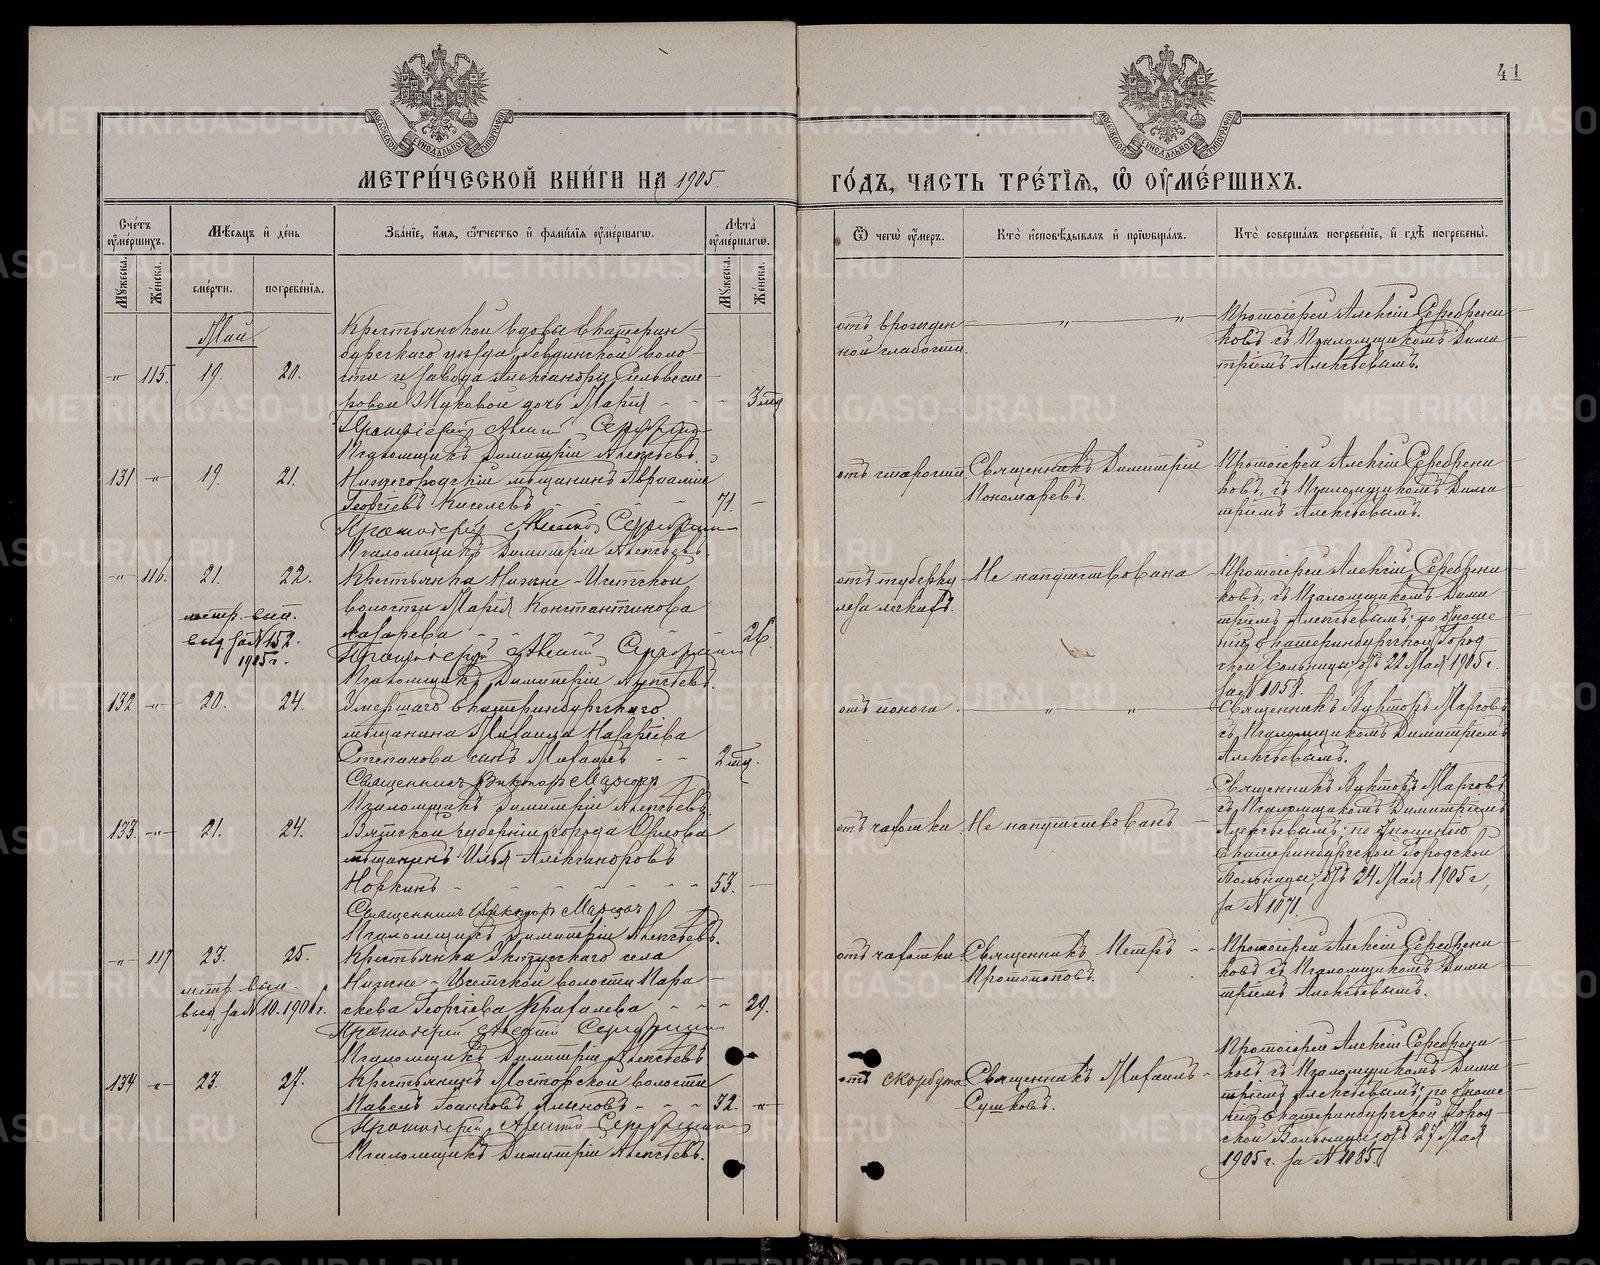 41
МЕТРИ́ЧЕСКОЙ КНИ́ГИ НА 1905
ГО́ДЪ, ЧАСТЬ ТРЕ́ТІѦ, Ѡ҆ ОУ҆МЕ́РШИХЪ.
Сче́тъ оу҆ме́ршихъ.
Мѣ́сѧцъ и҆ де́нь
Зва́нїе, и҆́мѧ, ѻ҆́тчество и҆ фами́лїѧ оу҆ме́ршагѡ.
Лѣ́та оу҆ме́ршагѡ.
Ѿ чегѡ̀ оу҆́меръ.
Кто̀ и҆сповѣ́дывалъ и҆ прїѡбща́лъ.
Кто̀ соверша́лъ погребе́нїе, и҆ гдѣ̀ погребены̀.
Мꙋ́жеска.
Же́нска.
сме́рти.
погребе́нїѧ.
Мꙋ́жеска.
Же́нска.
Май
-"- 115. 19. 20.
Крестьянской вдовы Екатерин-
бургскаго уѣзда, Ревдинской воло-
сти и завода Александры Сильвест-
ровой Жуковой дочь Марія - - - 3 мѣс
Протоіерей Алексій Серебрен
Псаломщикъ Димитрій Алексѣевъ.
отъ врожден
ной слабости.
" "
Протоіерей Алексій Серебрени
ковъ съ Псаломщикомъ Дими
тріемъ Алексѣевымъ.
131 -"- 19. 21.
Нижегородскій мѣщанинъ Авраамій
Георгіевъ Киселевъ - - - 71. -
Протоіерей Алексій Серебрени
Псаломщикъ Димитрій Алексѣевъ.
отъ старости
Священникъ Димитрій
Пономаревъ.
Протоіерей Алексій Серебрени
ковъ, съ Псаломщикомъ Дими
тріемъ Алексѣевымъ.
-"- 116. 21. 22.
метр. вып.
выд. за № 152.
1905 г.
Крестьянка Нижне-Исетской
волости Марія Константинова
Лазарева - - - 26.
Протоіерей Алексій Серебрени
Псаломщикъ Димитрій Алексѣевъ.
отъ туберку
леза легкихъ.
Не напутствована
Протоіерей Алексій Серебрени
ковъ, съ Псаломщикомъ Дими
тріемъ Алексѣевымъ; по отноше
нію Екатеринбургской Город-
ской Больницы, отъ 22 Мая 1905 г.
за № 1058.
132 -"- 20. 24.
Умершаго Екатеринбургскаго
мѣщанина Михаила Назаріева
Степанова сынъ Михаилъ - - 2 мѣс.
Священникъ Викторъ
Псаломщикъ Димитрій Алексѣевъ
отъ поноса.
" "
Священникъ Викторъ
съ Псаломщикомъ Димитріемъ
Алексѣевымъ.
133. -"- 21. 24.
Вятской губерніи города Орлова
мѣщанинъ Илья Александровъ
Норкинъ - - - - - - 53. -
Священникъ Викторъ
Псаломщикъ Димитрій Алексѣевъ.
отъ чахотки
Не напутствованъ
Священникъ Викторъ
съ Псаломщикомъ Димитріемъ
Алексѣевымъ; по отношенію
Екатеринбургской Городской
Больницы, отъ 24 Мая 1905 г,
за № 1071.
-"- 117 23. 25.
метр. вып.
выд. за № 10.
Крестьянка Уктусскаго села
Нижне-Исетской волости Пара-
скева Георгіева - - - 29.
Протоіерей Алексій Серебрени
Псаломщикъ Димитрій Алексѣевъ
отъ чахотки
Священникъ Петръ - -
Протопоповъ.
Протоіерей Алексій Серебрени
ковъ съ Псаломщикомъ Дими
тріемъ Алексѣевымъ.
134 -"- 23. 27.
Крестьянинъ волости
Павелъ - - - 72. -"-
Протоіерей Алексій Серебрени
Псаломщикъ Димитрій Алексѣевъ.
отъ скорбута
Священникъ Михаилъ -
Сушковъ.
Протоіерей Алексій Серебрени
ковъ съ Псаломщикомъ Дими
тріемъ Алексѣевымъ; по отноше
нію Екатеринбургской Город-
ской Больницы, отъ 27 Мая
1905 г. за № 1085.
METRIKI.GASO-URAL.RU